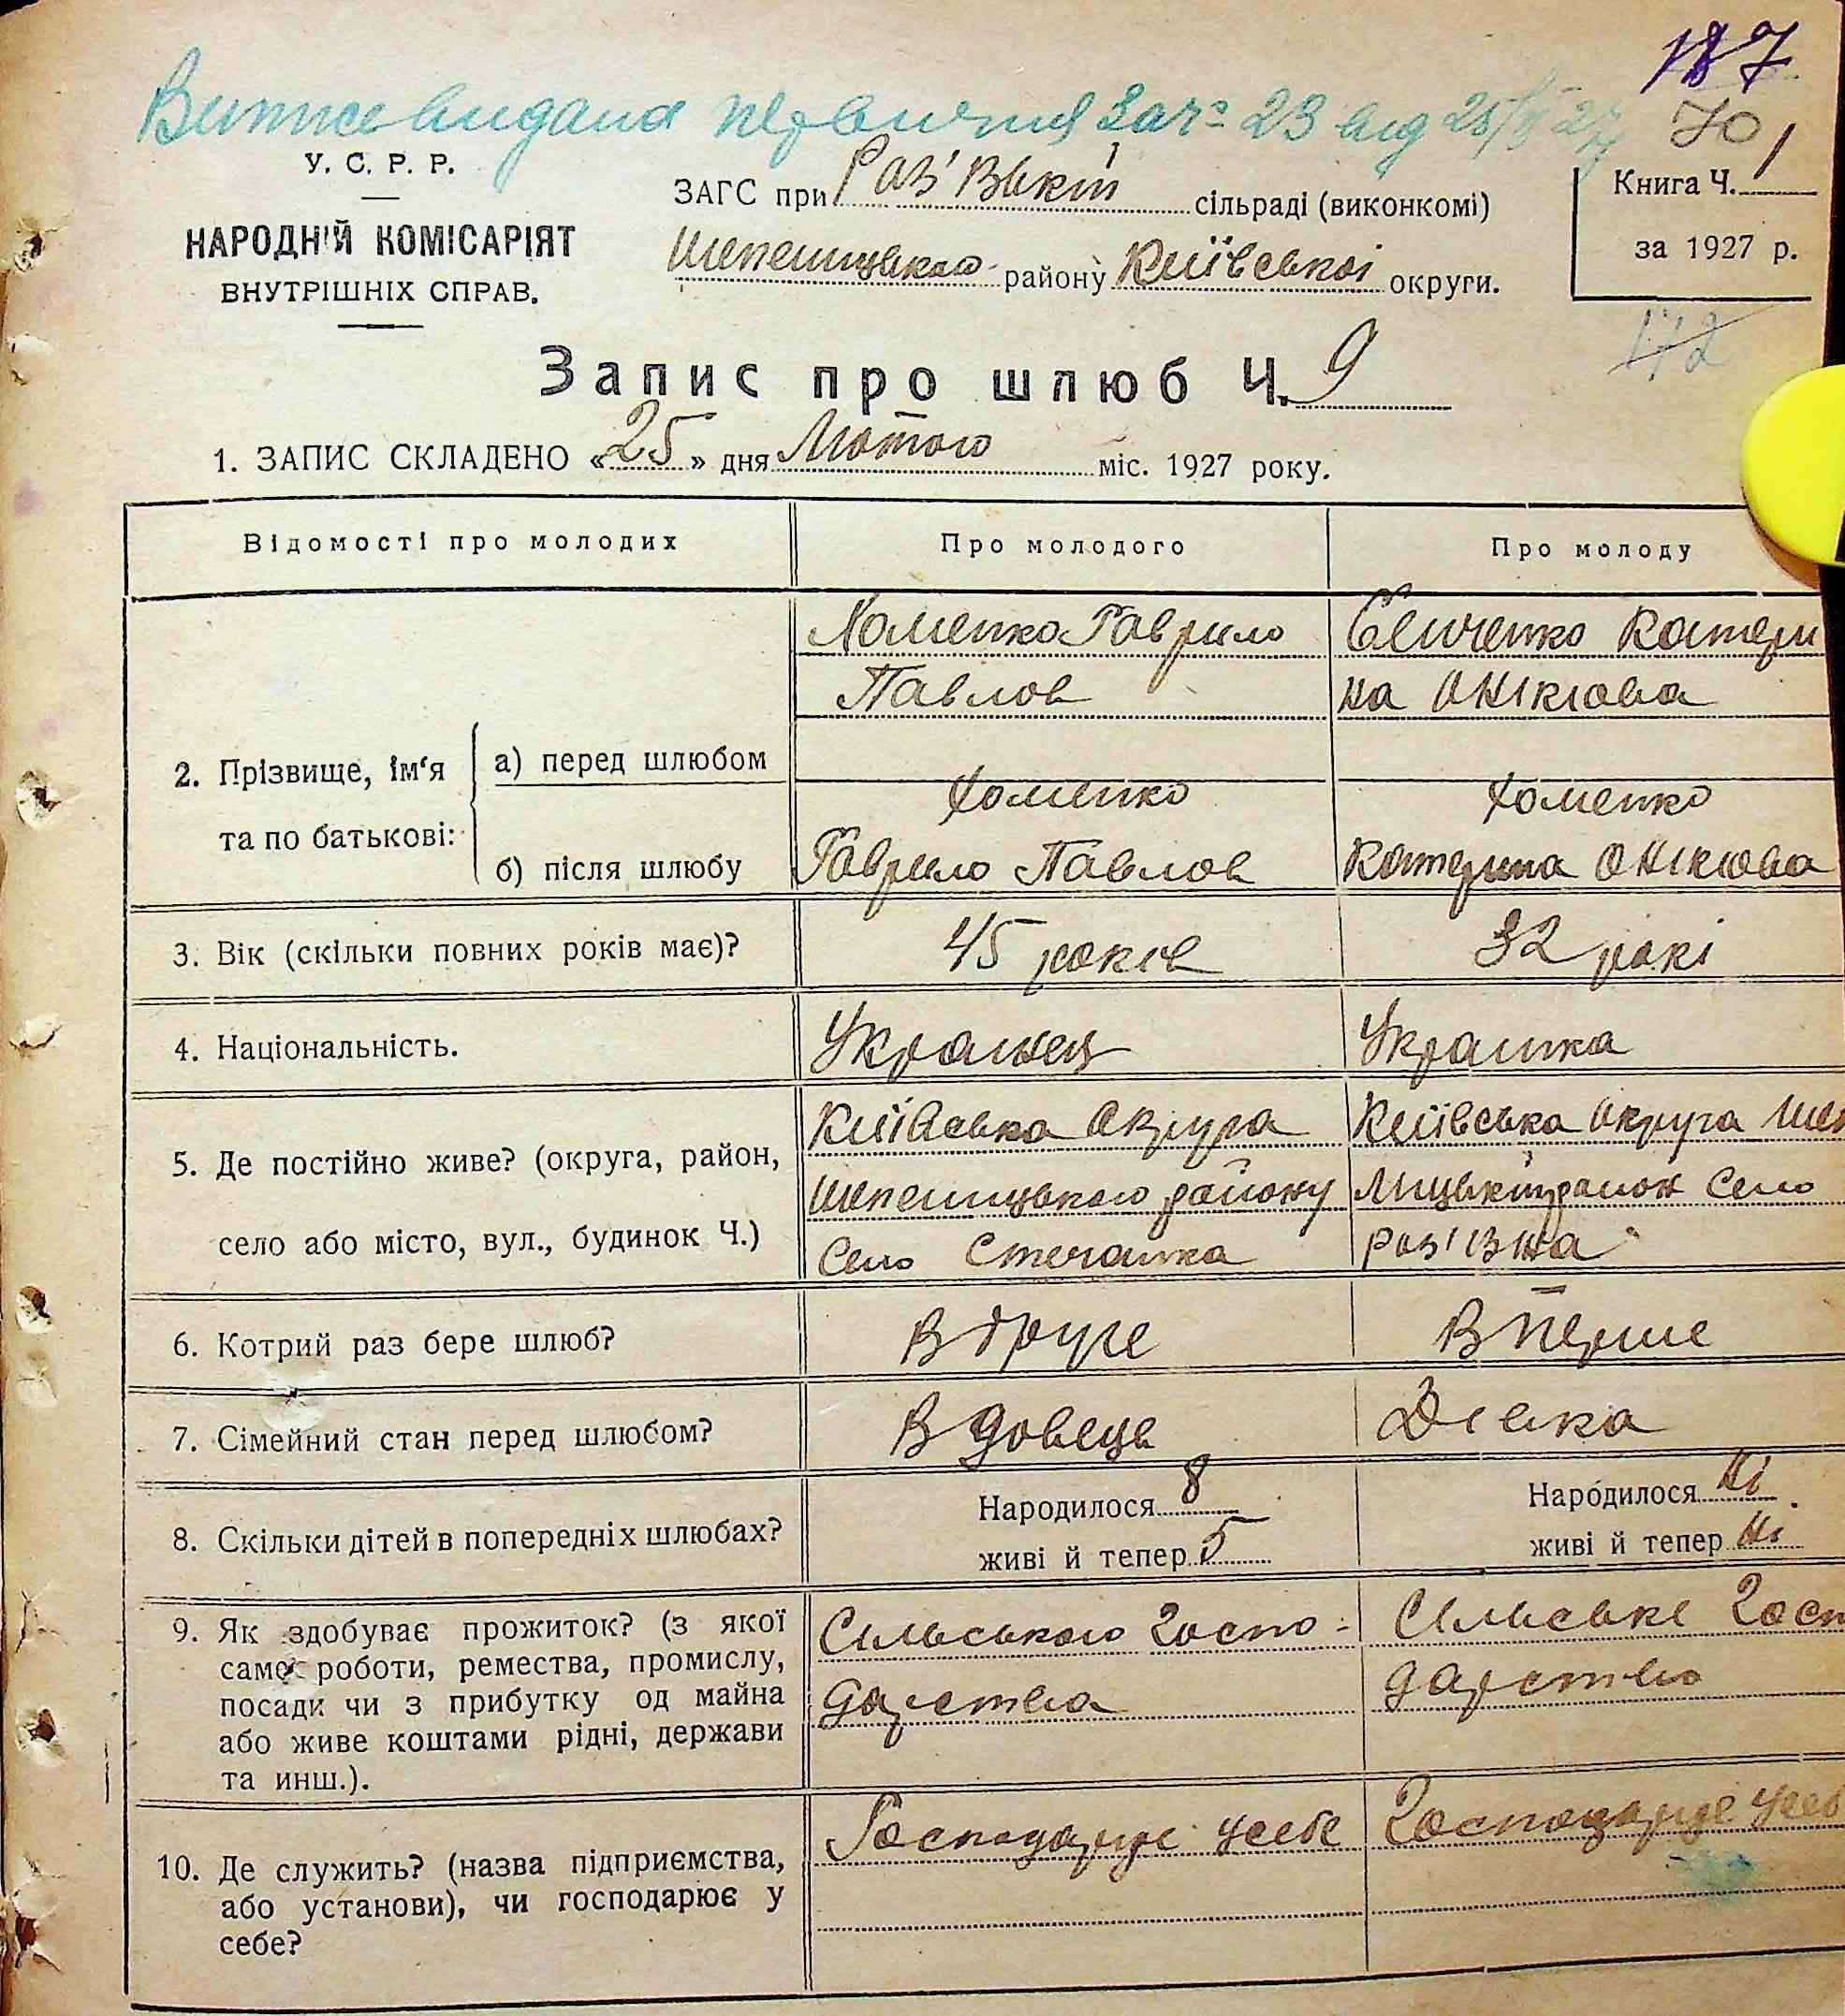 187
Випись видана первична за №23 від 25/II 27
70
У. С. Р. Р.
НАРОДНІЙ КОМІСАРІЯТ
ВНУТРІШНІХ СПРАВ.
ЗАГС при Раз'вській сільраді (виконкомі)
Шепелицького району Київської округи.
Книга Ч. 1
за 1927 р.
172
Запис про шлюб Ч. 9
1. ЗАПИС СКЛАДЕНО «25» дня Лютого міс. 1927 року.
Відомості про молодих Про молодого Про молоду
2. Прізвище, ім'я та по батькові:
а) перед шлюбом
Хоменко Гаврило
Павлов
Катери
на Онікіова
б) після шлюбу
Хоменко
Гаврило Павлов
Хоменко
Катерина Онікіова
3. Вік (скільки повних років має)? 45 років 32 рокі
4. Національність. Украінец Украінка
5. Де постійно живе? (округа, район,
село або місто, вул., будинок Ч.)
Київська Округа
Шепелицького району
Село Стечанка
Київська Округа Шепе
лицький район Село
Роз'івжа
6. Котрий раз бере шлюб? В друге В перше
7. Сімейний стан перед шлюбом? Вдовець Дівка
8. Скільки дітей в попередніх шлюбах?
Народилося 8
живі й тепер 5
Народилося Ні
живі й тепер Ні
9. Як здобуває прожиток? (з якої
саме роботи, ремества, промислу,
посади чи з прибутку од майна
або живе коштами рідні, держави
та инш.).
Сільського госпо-
дарства
Сільське Госп
дарство
10. Де служить? (назва підприємства,
або установи), чи господарює у
себе?
Господарує усебе
Господарує усеб